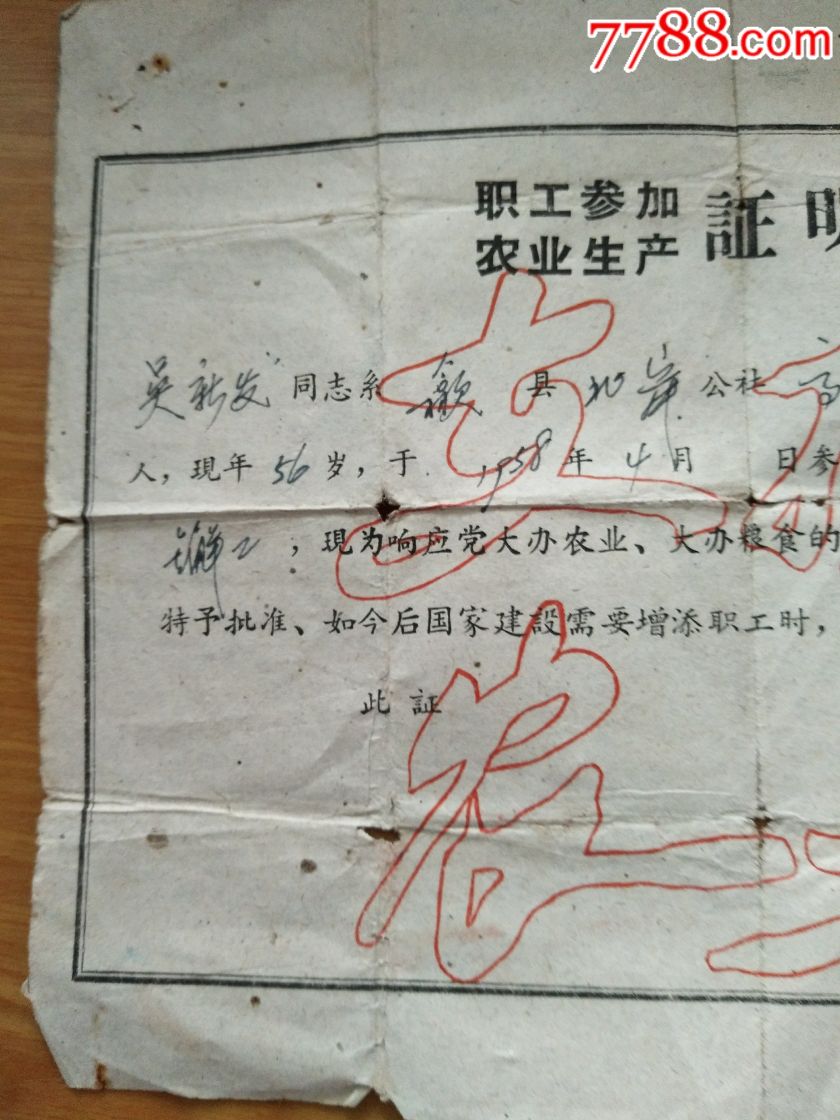 7788.com
职工参加
农业生产 証明
吴新发 同志系 歙 县 北岸 公社 高
人，現年 56 岁，于 1958 年 4 月 日参
，現为响应党大办农业、大办粮食的
特予批准、如今后国家建設需要增添职工时，
此証